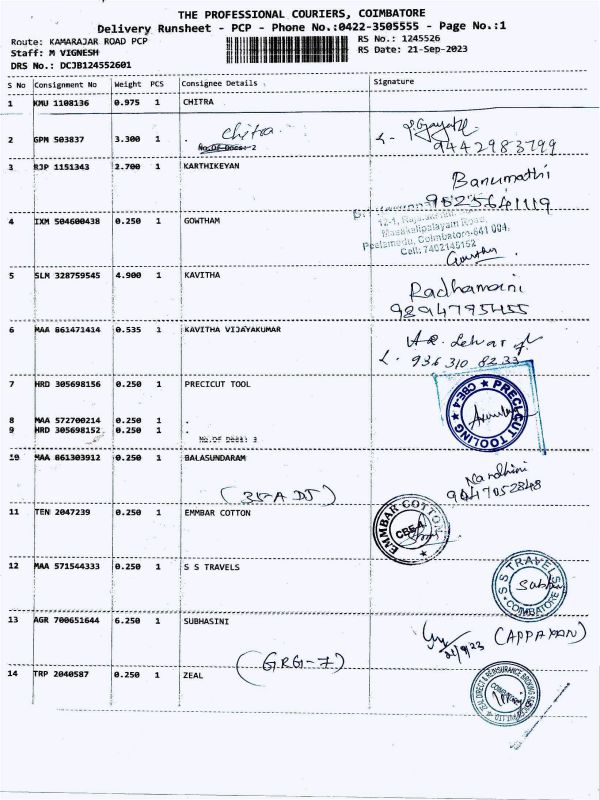 THE PROFESSIONAL COURIERS, COIMBATORE
Delivery Runsheet - PCP - Phone No.:0422-3505555 - Page No.:1
Route: KAMARAJAR ROAD PCP RS No.: 1245526
Staff: M VIGNESH RS Date: 21-Sep-2023
DRS No.: DCJB124552601
S No Consignment No Weight PCS Consignee Details Signature
1 KMU 1108136 0.975 1 CHITRA
Chitra
2 GPM 503837 3.300 1 .
No.Of Docs: 2
9442983799
3 RJP 1151343 2.700 1 KARTHIKEYAN
Banumathi
9625641119
4 IXM 504600438 0.250 1 GOWTHAM
Masakalipalayam Road,
Peelamedu, Coimbatore-641 004.
Cell: 7402145152
5 SLM 328759545 4.900 1 KAVITHA
Radhamani
9894795455
6 MAA 861471414 0.535 1 KAVITHA VIJAYAKUMAR
936 310 8233
7 HRD 305698156 0.250 1 PRECICUT TOOL
PRECI-CUT TOOLING
CBE-4
8 MAA 572700214 0.250 1 .
9 HRD 305698152 0.250 1 .
No.Of Docs: 3
10 MAA 861303912 0.250 1 BALASUNDARAM
Nandhini
9047052848
11 TEN 2047239 0.250 1 EMMBAR COTTON
EMMBAR COTTON
CBE-4
12 MAA 571544333 0.250 1 S S TRAVELS
S S TRAVELS
COIMBATORE
13 AGR 700651644 6.250 1 SUBHASINI
21/9/23 (APPAYAN)
(GRG-7)
14 TRP 2040587 0.250 1 ZEAL